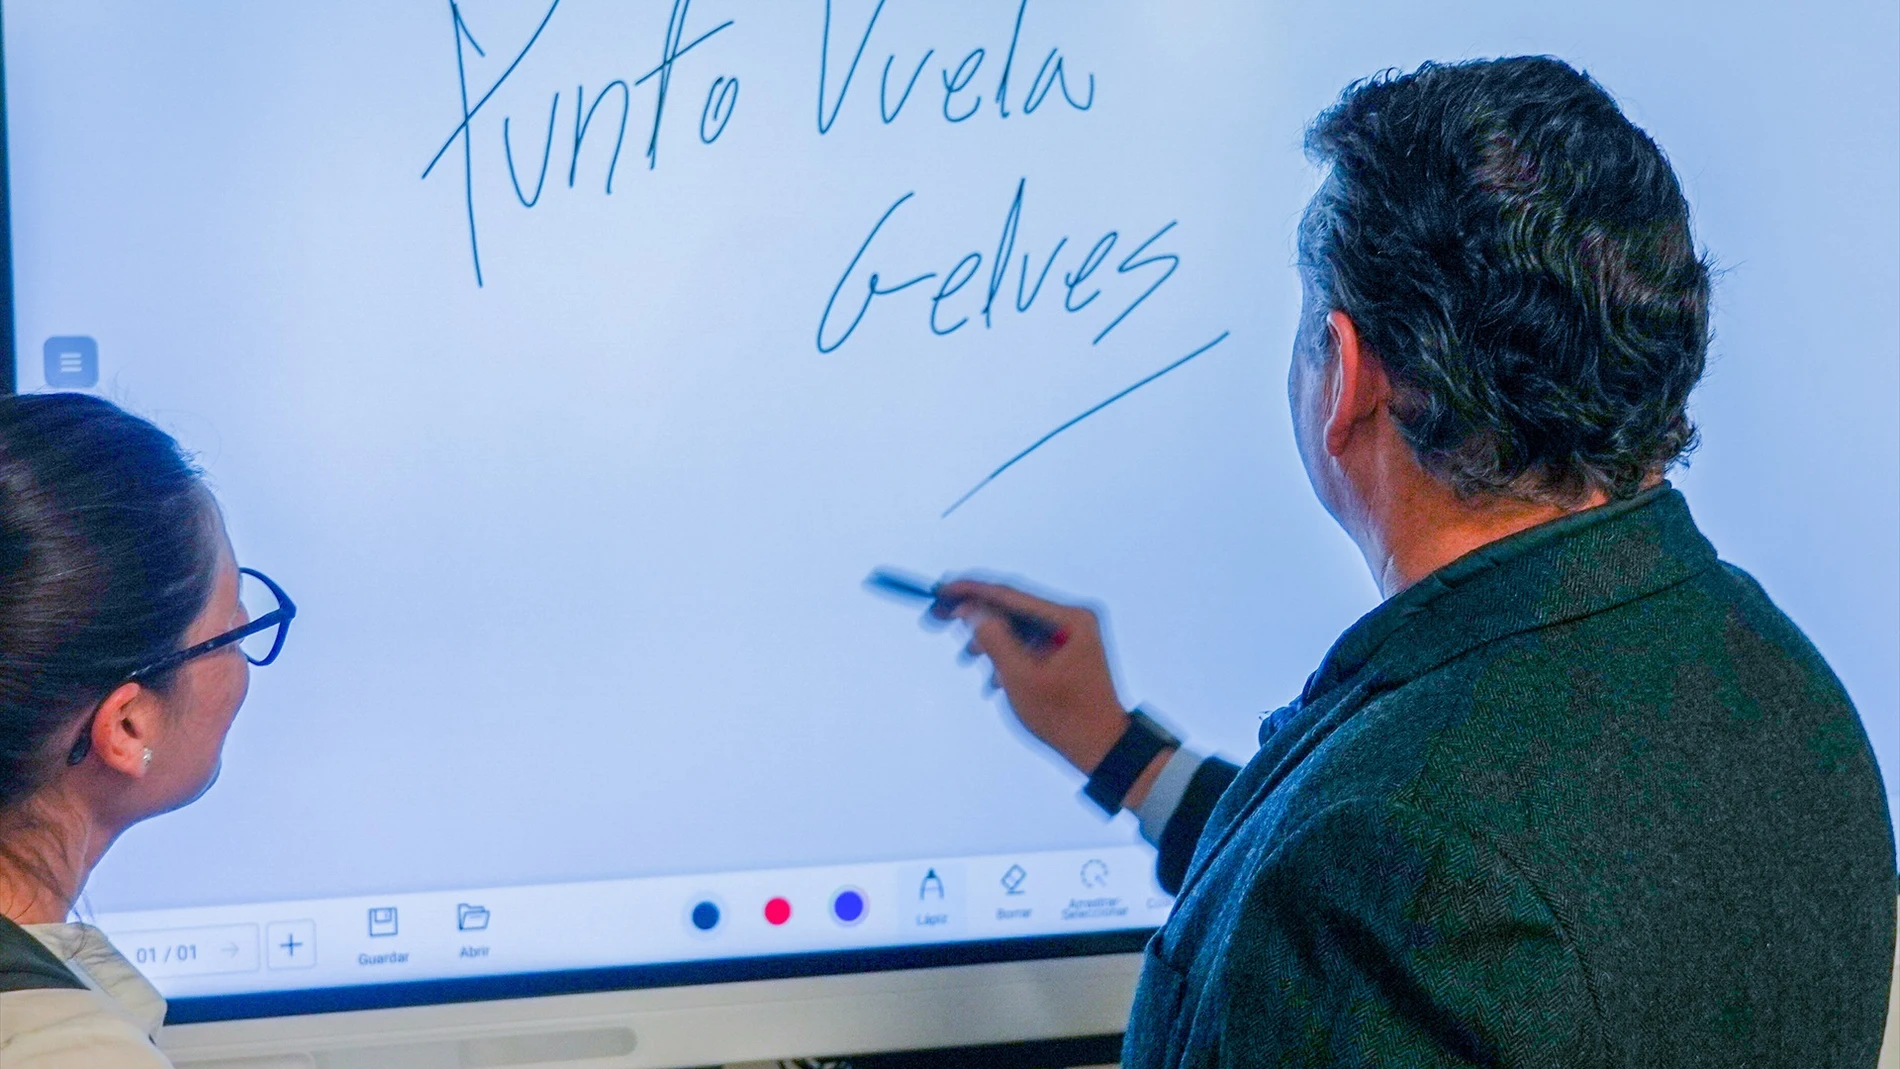 Punto Vuela
Gelves
01 / 01
Guardar
Abrir
Lápiz
Borrar
Arrastrar-
Seleccionar